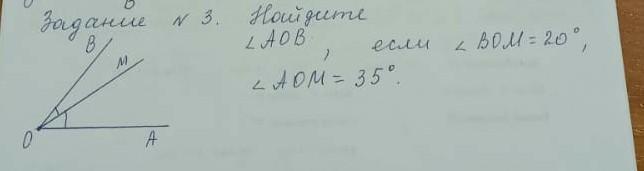 Задание N 3. Найдите
∠AOB, если ∠BOM = 20°,
∠AOM = 35°.
B
M
O
A